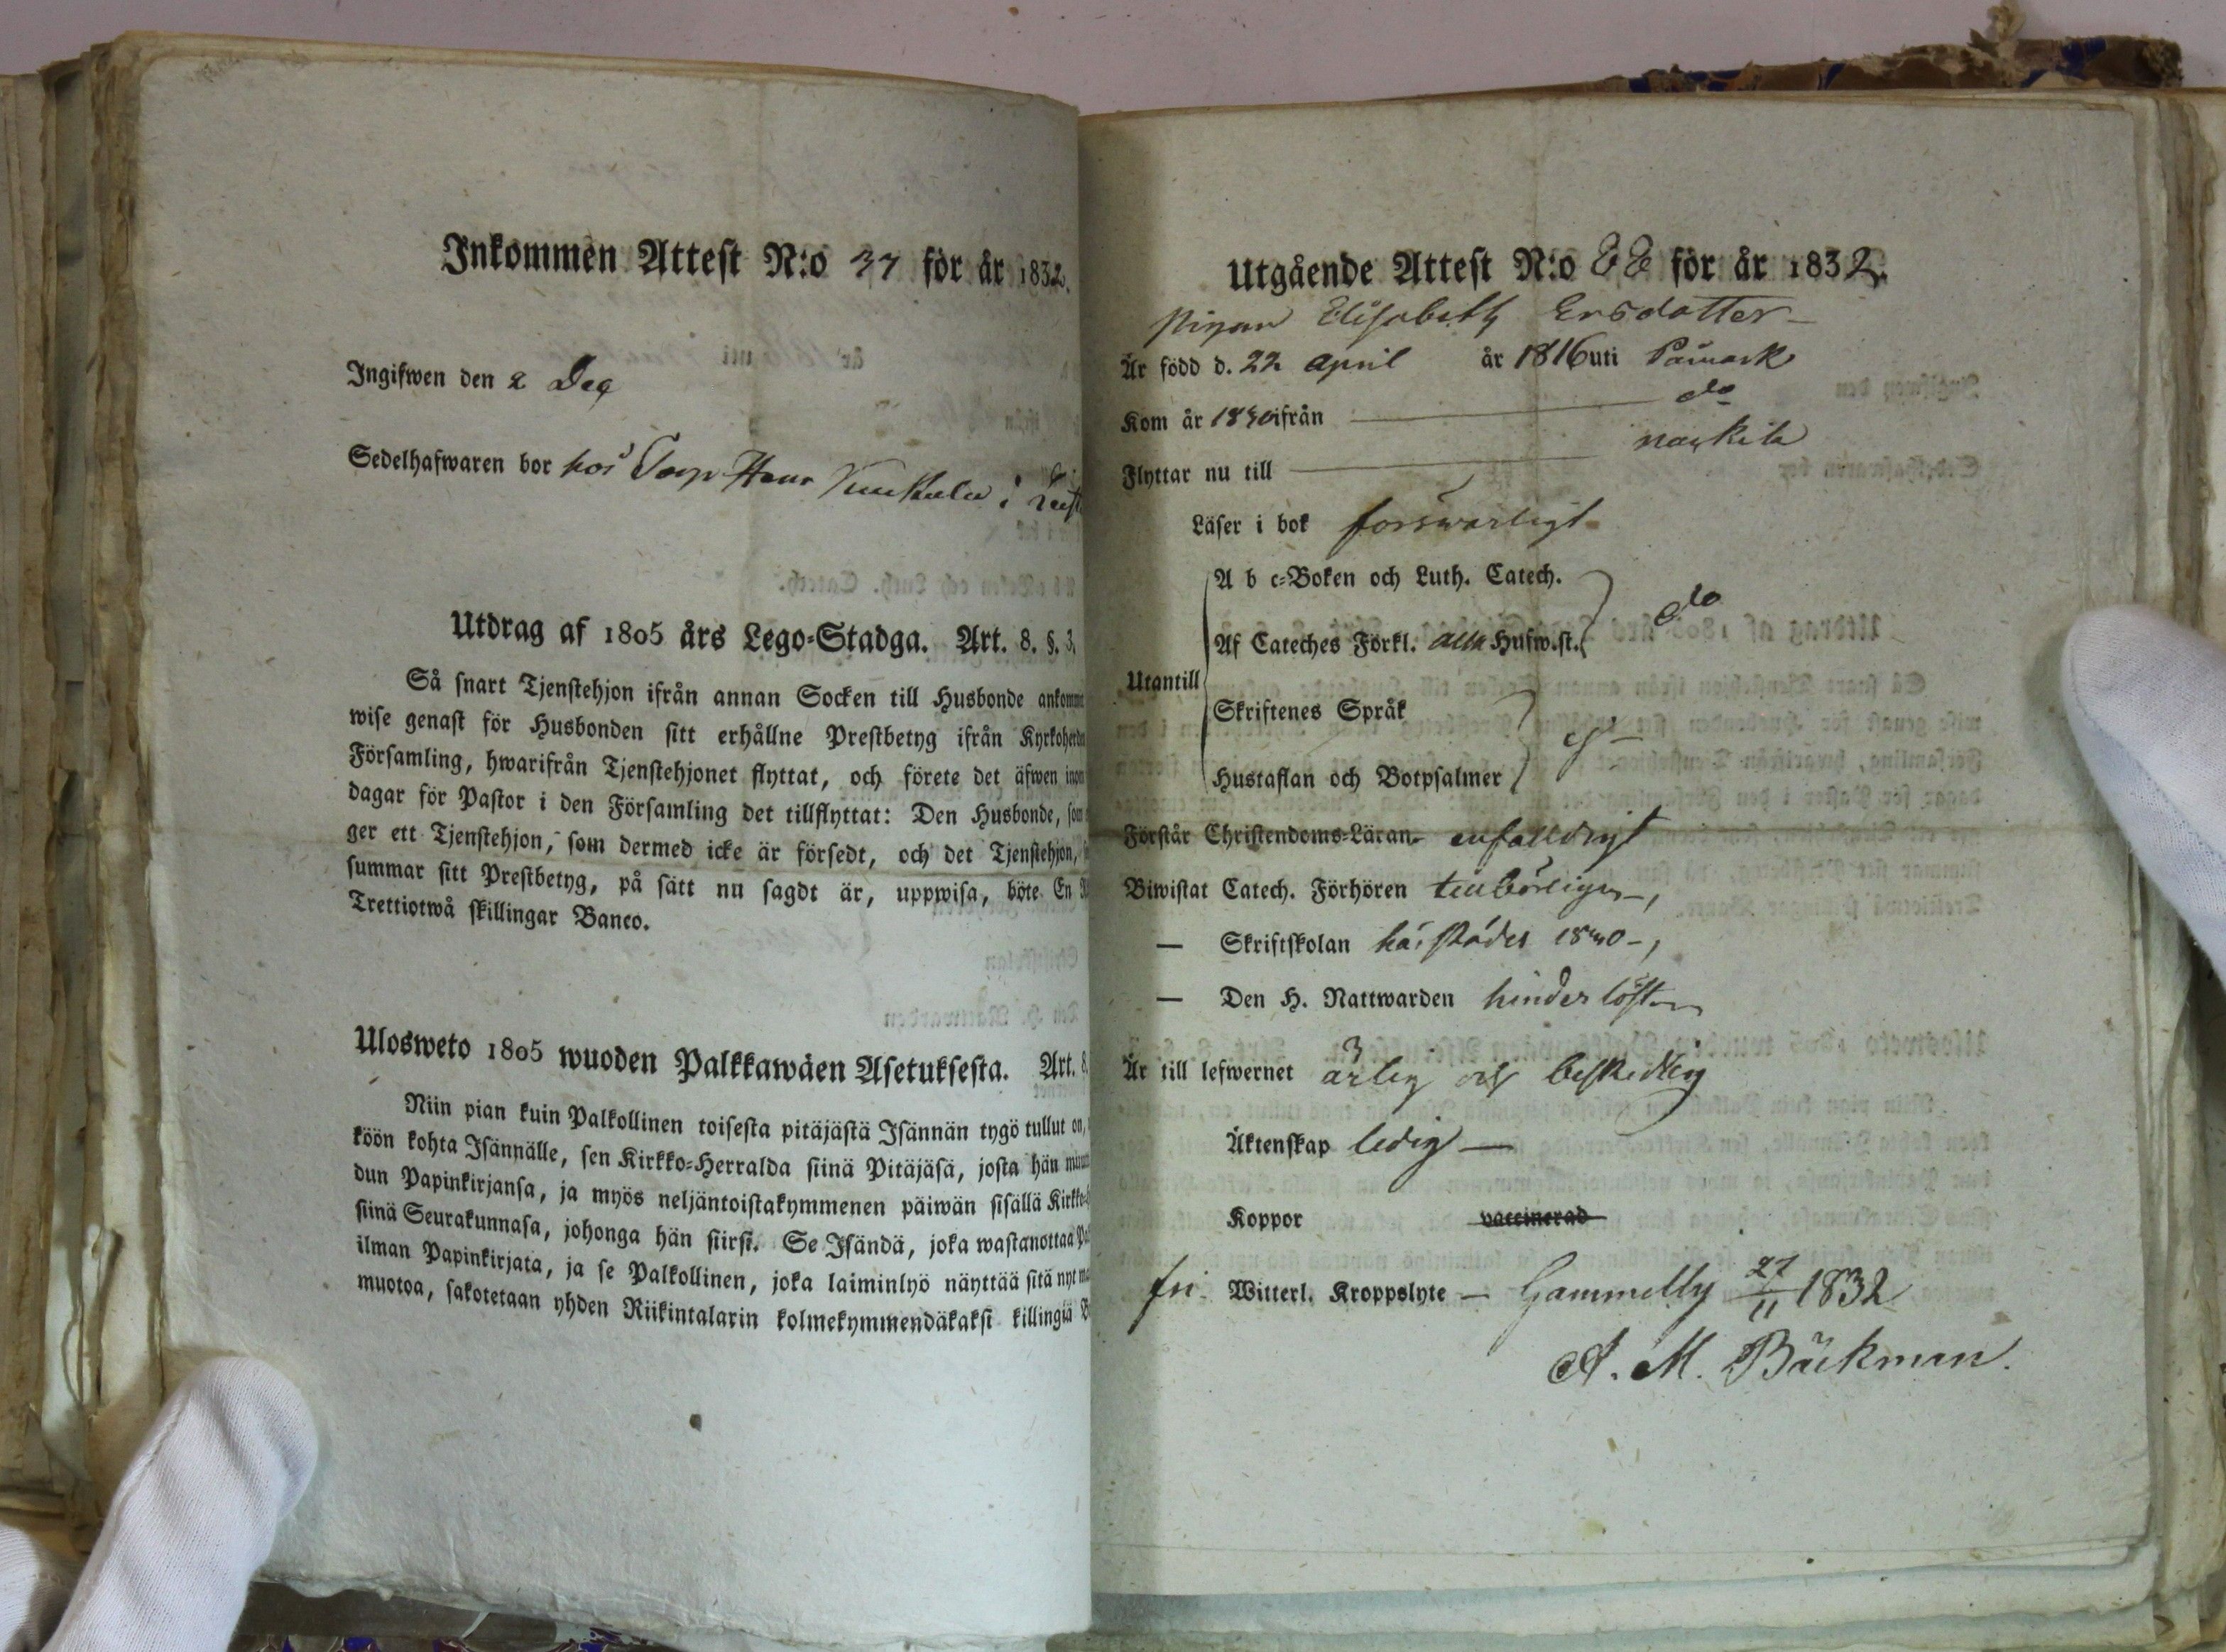 Inkommen Attest N:o 37 för år 1832.
Ingifwen den 2 Dec
Sedelhafwaren bor hos Torp Hans i
Utdrag af 1805 års Lego-Stadga. Art. 8. §. 3.
Så snart Tjenstehjon ifrån annan Socken till Husbonde
wise genast för Husbonden sitt erhållne Prestbetyg ifrån
Församling, hwarifrån Tjenstehjonet flyttat, och förete det äfwen
dagar för Pastor i den Församling det tillflyttat: Den Husbonde, som
ger ett Tjenstehjon, som dermed icke är försedt, och det Tjenstehjon,
summar sitt Prestbetyg, på sätt nu sagdt är, uppwisa, böte En
Trettiotwå skillingar Banco.
Ulosweto 1805 wuoden Palkkawäen Asetuksesta. Art. 8.
Niin pian kuin Palkollinen toisesta pitäjästä Isännän tygö tullut on,
köön kohta Isännälle, sen Kirkko-Herralda siinä Pitäjäsä, josta hän
dun Papinkirjansa, ja myös neljäntoistakymmenen päiwän sisällä
siinä Seurakunnasa, johonga hän siirsi. Se Isändä, joka wastanottaa
ilman Papinkirjata, ja se Palkollinen, joka laiminlyö näyttää sitä nyt
muotoa, sakotetaan yhden Riikintalarin kolmekymmendäkaksi killingiä
Utgående Attest N:o 88 för år 1832.
Pigan Elisabeth Ersdotter
Är född d. 22 April år 1816 uti Påmark
Kom år 1830 ifrån do
Flyttar nu till
Läser i bok forswarligt
A b c-Boken och Luth. Catech.
do
Af Cateches Förkl. alla Husw.st.
Utantill
Skriftenes Språk
ej
Hustaflan och Botpsalmer
Förstår Christendoms-Läran enfalldigt
Biwistat Catech. Förhören tillbörligen
— Skriftskolan härstädes
— Den H. Nattwarden hinderlöst
Är till lefwernet ärlig och beskedlig
Äktenskap ledig
Koppor vaccinerad
fri Witterl. Kroppslyte — Gammelby 27/11 1832
A. M. Bäckman.